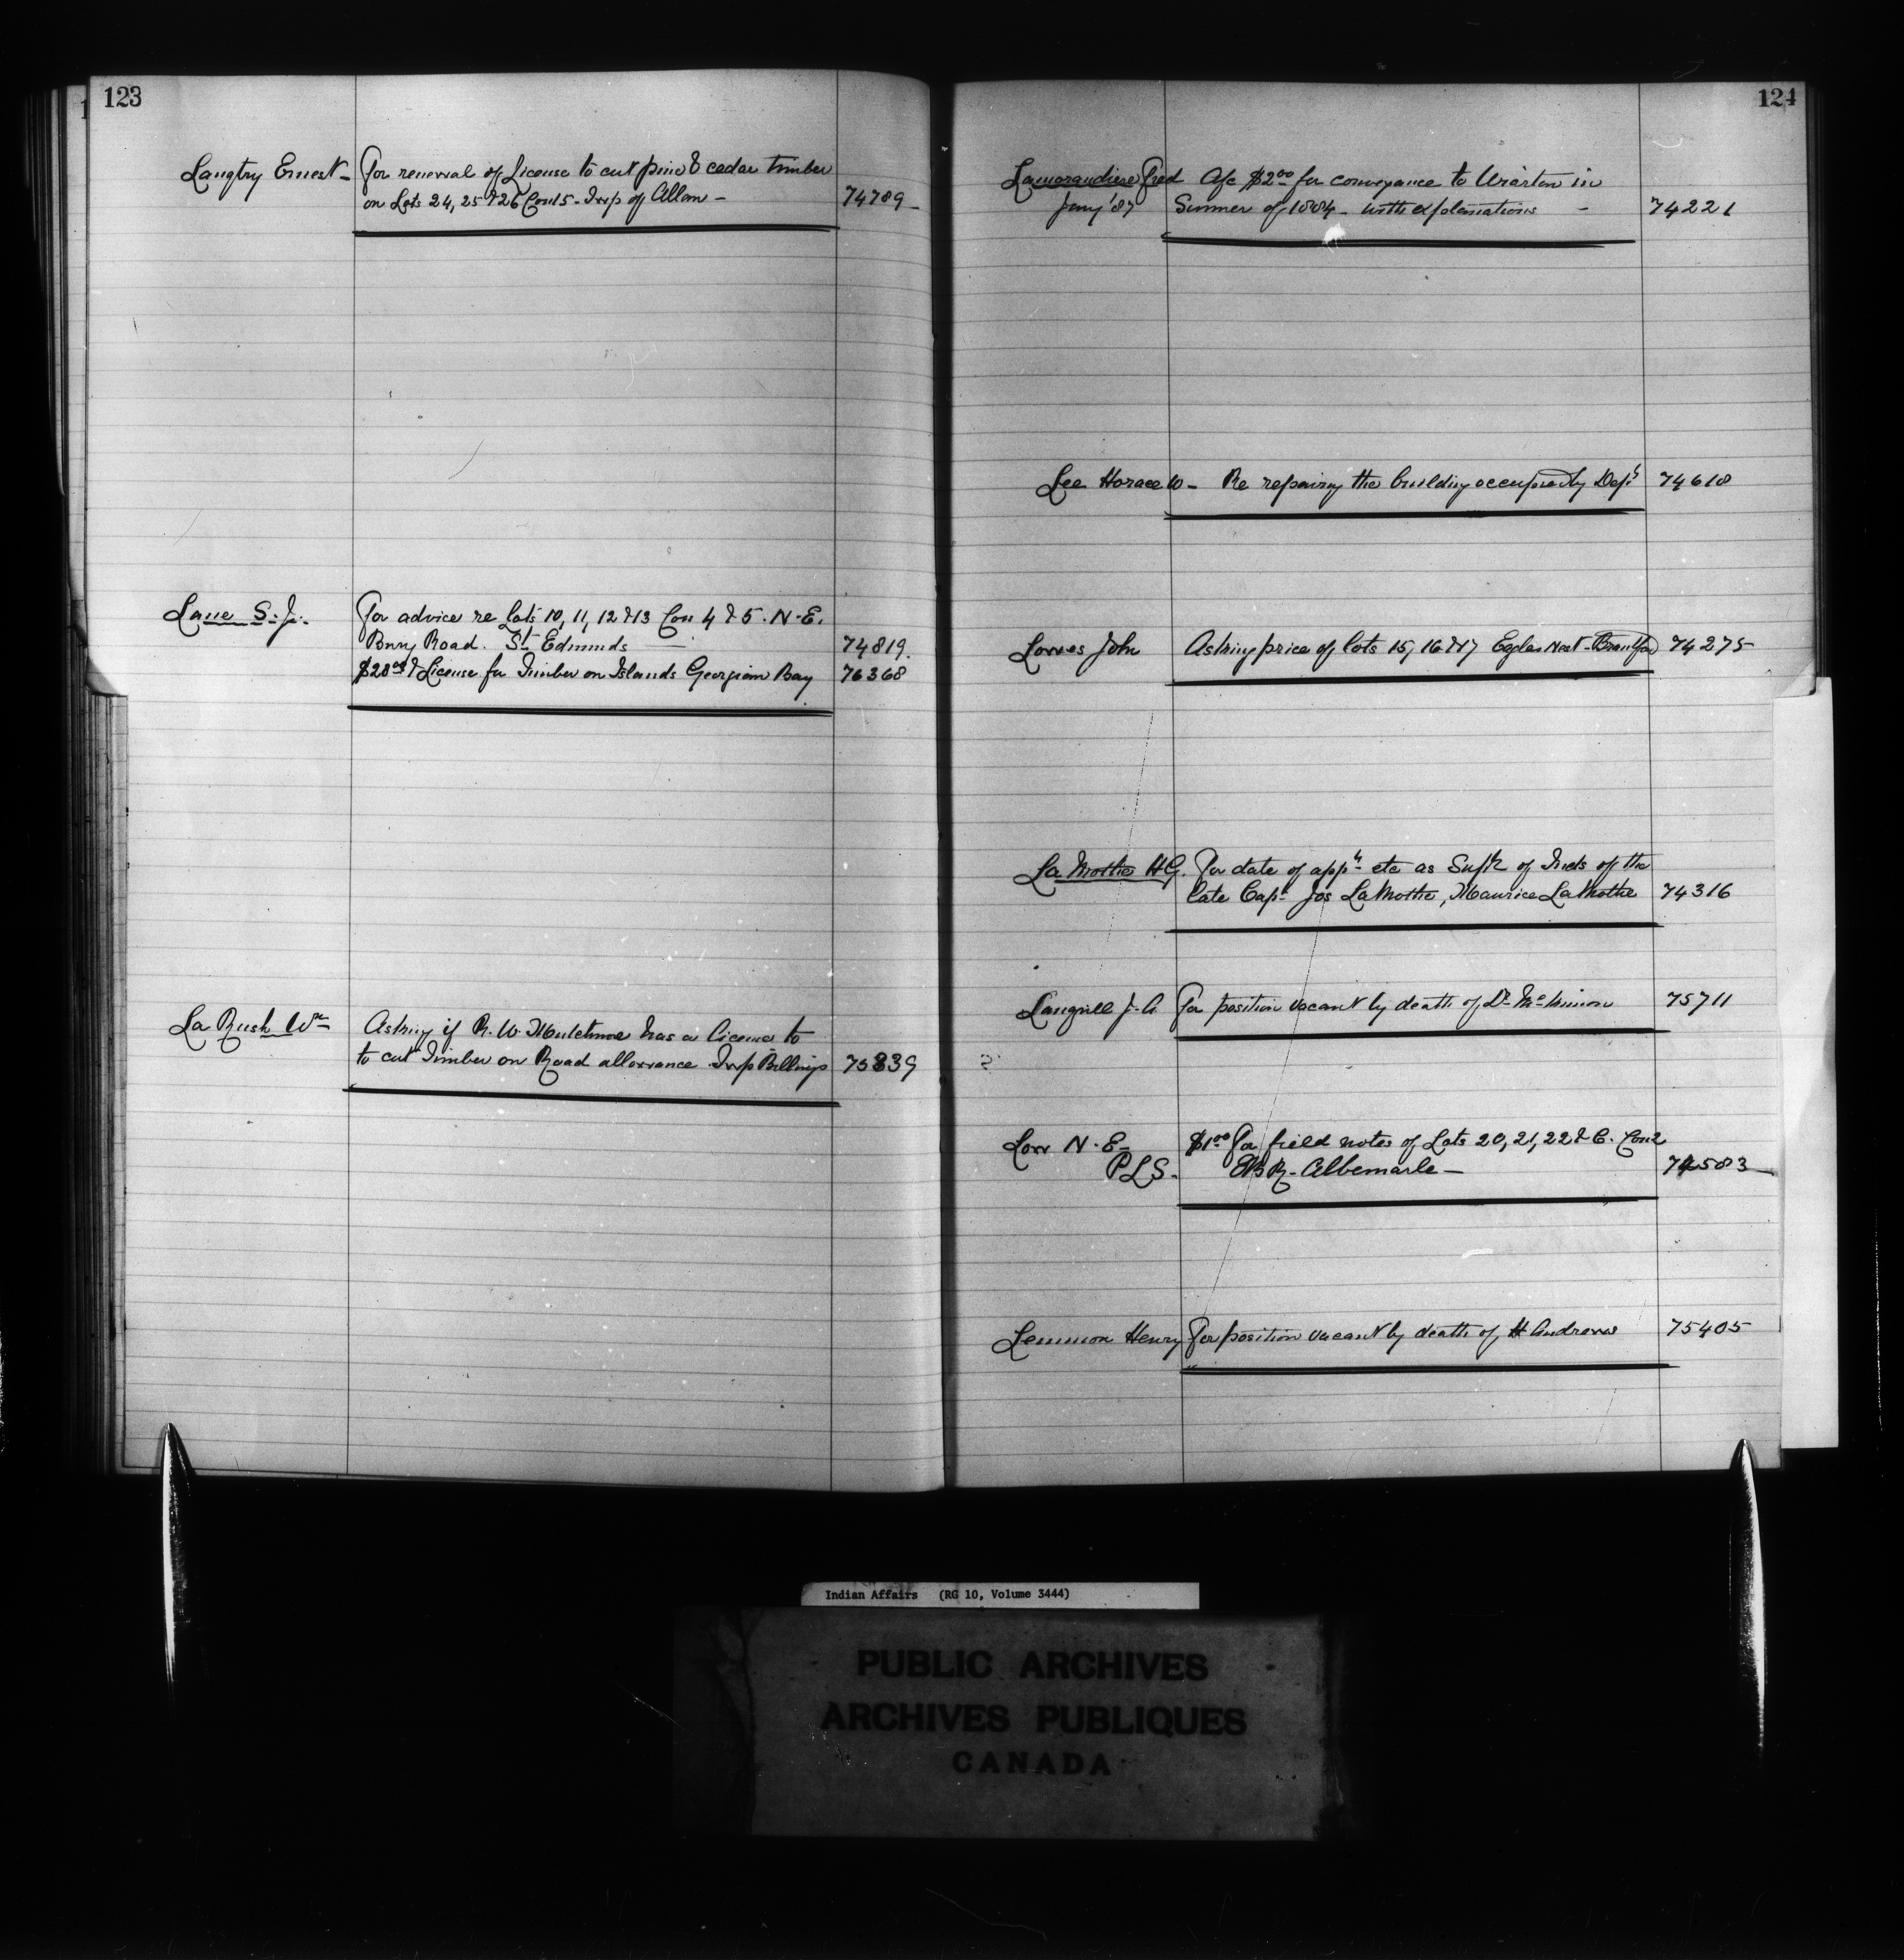 123
Langtry Ernest - For renewal of License to cut pine & cedar timber
on Lots 24, 25 & 26 Con 15 - Twp of Allan - 74789 -
Lane S. J. For advice re Lots 10, 11, 12 & 13 Con 4 & 5. N. E.
Bury Road. St Edmunds — 74819.
$20.00 & License for Timber on Islands Georgian Bay 76368
La Rush Wm Asking if R. W. has a license to
to cut Timber on Road allowance Twp Billings 75839
124
Lamorandiere Fred A/c $2.00 for conveyance to Wiarton in
Jany '87 Summer of 1884 - with explanations - 74221
Lee Horace W - Re repairing the building occupied by Dept 74618
Lowes John Asking price of lots 15, 16 & 17 Eagles Nest - Brantford 74275
La Mothe H G. For date of appt etc as Supt of Inds of the
late Capt Jos LaMothe, Maurice LaMothe 74316
Langrill J. A. For position vacant by death of Dr 75711
Low N. E - $1.00 For field notes of Lots 20, 21, 22 & C. Con 2
P L S. E B R - Albemarle - 74583
Lemmon Henry For position vacant by death of H Andrews 75405
Indian Affairs (RG 10, Volume 3444)
PUBLIC ARCHIVES
ARCHIVES PUBLIQUES
CANADA